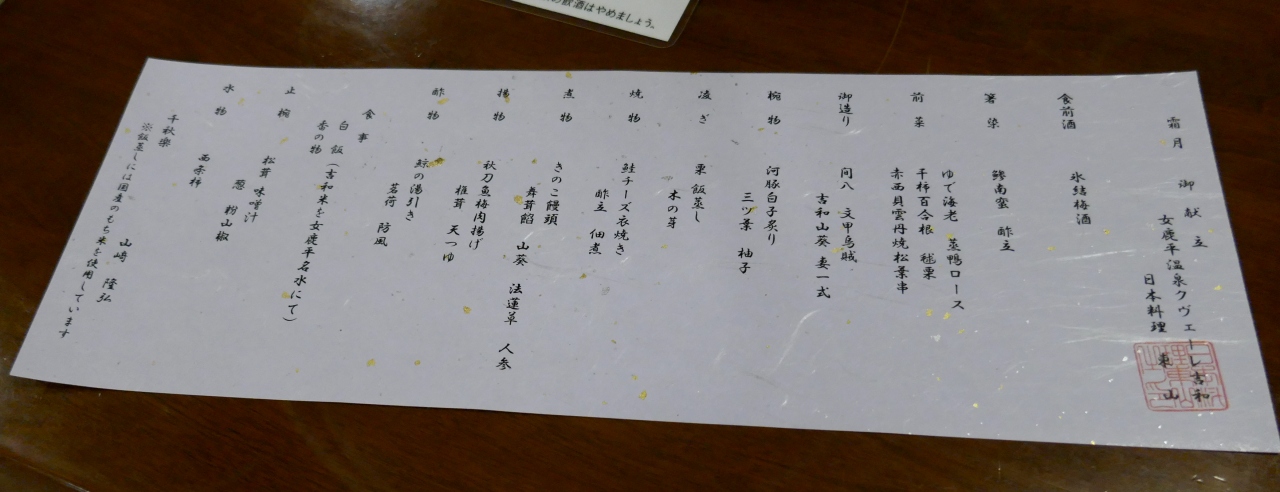 の飲酒はやめましょう。
霜月 御献立
女鹿平温泉クヴェーレ吉和
日本料理 東山
食前酒
氷結梅酒
箸染
鯵南蛮 酢立
前菜
ゆで海老 蒸鴨ロース
干柿百合根 毬栗
赤西貝雲丹焼松葉串
御造り
間八 文甲烏賊
吉和山葵 妻一式
椀物
河豚白子炙り
三ツ葉 柚子
凌ぎ
栗飯蒸し
木の芽
焼物
鮭チーズ衣焼き
酢立 佃煮
煮物
きのこ饅頭
舞茸餡 山葵 法蓮草 人参
揚物
秋刀魚梅肉揚げ
椎茸 天つゆ
酢物
鯨の湯引き
茗荷 防風
食事
白飯(吉和米を女鹿平名水にて)
香の物
止椀
松茸 味噌汁
葱 粉山椒
水物
西条柿
千秋楽
山崎 隆弘
※飯蒸しには国産のもち米を使用しています